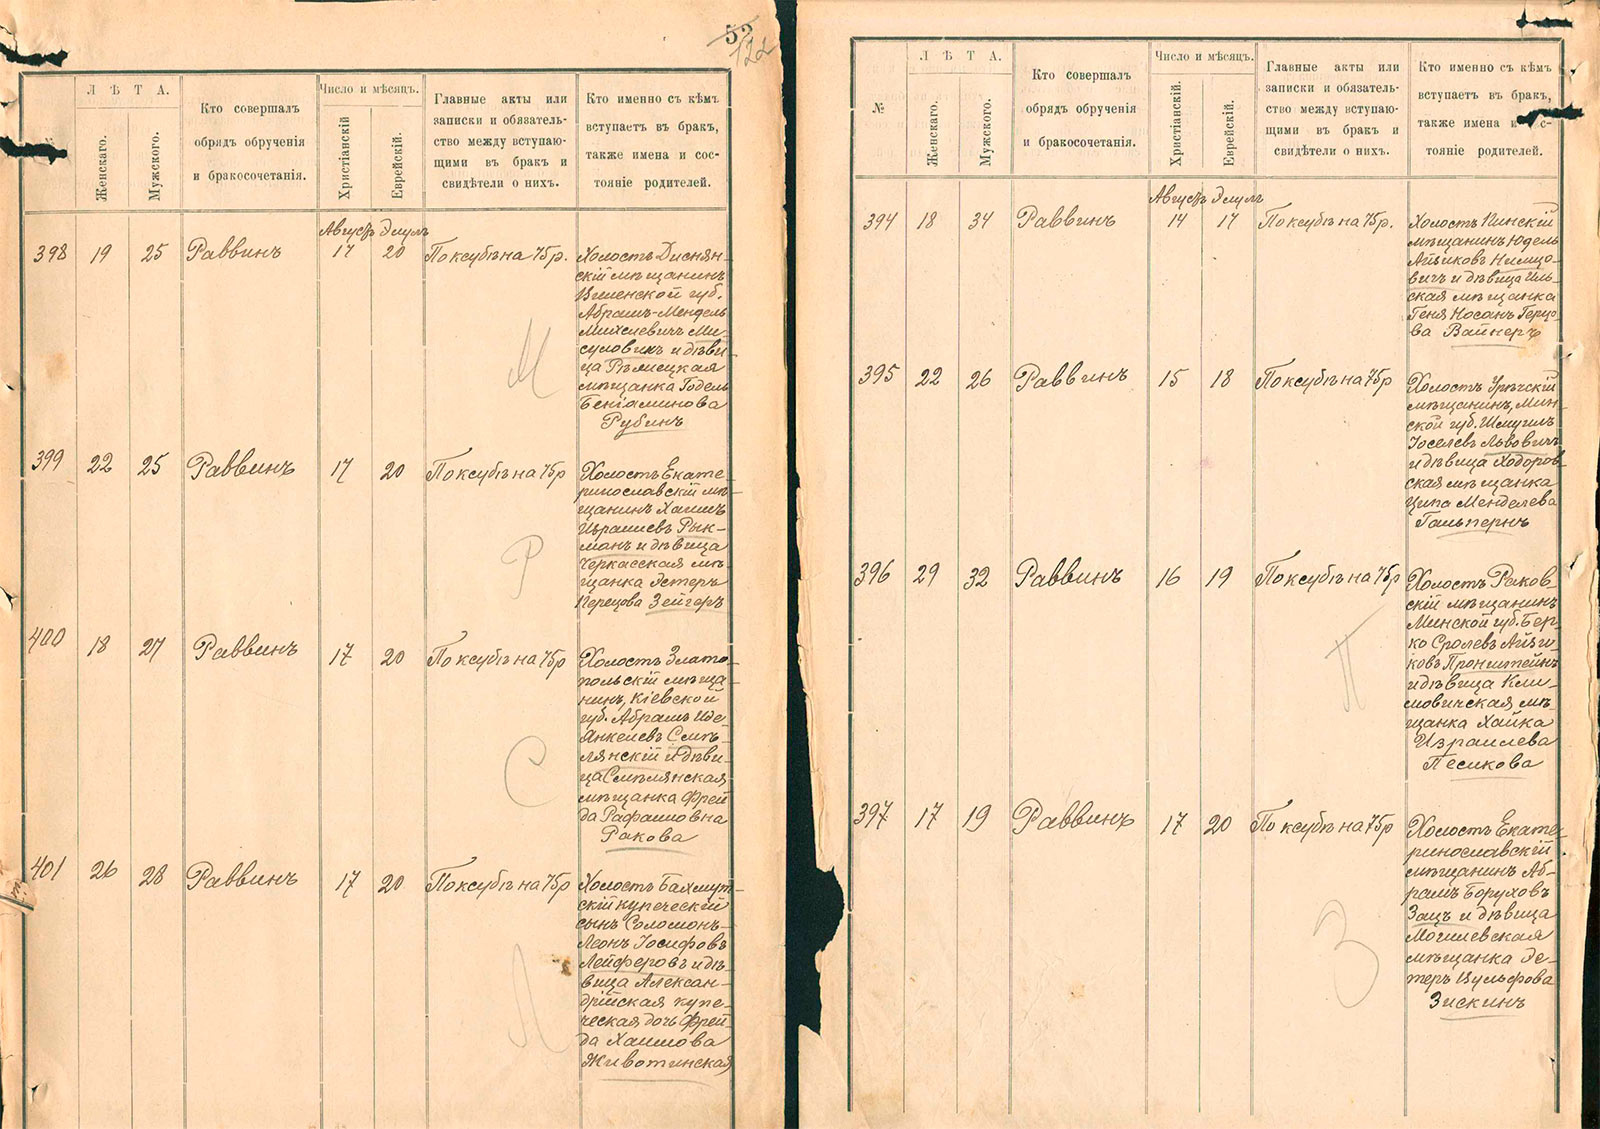 53
122
Л Ѣ Т А.
Женскаго.
Мужского.
Кто совершалъ
обрядъ обрученія
и бракосочетанія.
Число и мѣсяцъ.
Христіанскій
Еврейскій.
Главные акты или
записки и обязатель-
ство между вступаю-
щими въ бракъ и
свидѣтели о нихъ.
Кто именно съ кѣмъ
вступаетъ въ бракъ,
также имена и сос-
тояніе родителей.
Августъ Элулъ
398 19 25 Раввинъ 17 20 По ксубѣ на 75 р.
Холостъ Диснян-
скій мѣщанинъ
Виленской губ.
Абрамъ-Мендель
Михелевичъ Ми-
суловинъ и дѣви-
ца Рѣжицкая
мѣщанка Годель
Беніаминова
Рубинъ
399 22 25 Раввинъ 17 20 По ксубѣ на 75р
Холостъ Екате-
ринославскій мѣ-
щанинъ Хаимъ
Израилевъ Рык-
манъ и дѣвица
Черкасская мѣ-
щанка Эстеръ
Перецова Зейгеръ
400 18 27 Раввинъ 17 20 По ксубѣ на 75р
Холостъ Злато-
польскій мѣща-
нинъ, Кіевской
губ. Абрамъ Иде-
Анкелевъ Смѣ-
лянскій и дѣви-
ца Смѣлянская
мѣщанка Фрей
да Рафаиловна
Ракова
401 26 28 Раввинъ 17 20 По ксубѣ на 75р
Холостъ Бахмут-
скій купеческій
сынъ Соломонъ-
Леонъ Іосифовъ
Лейферовъ и дѣ-
вица Алексан-
дрійская купе-
ческая дочь Фрей-
да Хаимова
Животинская
М
Р
С
Л
№
Л Ѣ Т А.
Женскаго.
Мужского.
Кто совершалъ
обрядъ обрученія
и бракосочетанія.
Число и мѣсяцъ.
Христіанскій.
Еврейскій.
Главные акты или
записки и обязатель-
ство между вступаю-
щими въ бракъ и
свидѣтели о нихъ.
Кто именно съ кѣмъ
вступаетъ въ бракъ,
также имена и с-
тояніе родителей.
Августъ Элулъ
394 18 34 Раввинъ 14 17 По ксубѣ на 75р.
Холостъ Пинскій
мѣщанинъ Юдель
Айзиковъ Нимцо-
вичъ и дѣвица Иль-
ская мѣщанка
Геня Носанъ Герцо-
ва Вайнеръ
395 22 26 Раввинъ 15 18 По ксубѣ на 75р
Холостъ Урѣчскій
мѣщанинъ, Мин-
ской губ. Шмуилъ
Іоселевъ Львовичъ
и дѣвица Ходоров-
ская мѣщанка
Ципа Менделева
Гальпернъ
396 29 32 Раввинъ 16 19 По ксубѣ на 75р
Холостъ Раков-
скій мѣщанинъ
Минской губ. Бер-
ко Сролевъ Айзи-
ковъ Пронштейнъ
и дѣвица Кли-
мовичская мѣ-
щанка Хайка
Израилева
Песикова
397 17 19 Раввинъ 17 20 По ксубѣ на 75р
Холостъ Екате-
ринославскій
мѣщанинъ Аб-
рамъ Боруховъ
Защъ и дѣвица
Могилевская
мѣщанка Эс-
теръ Вульфова
Зискинъ
П
З